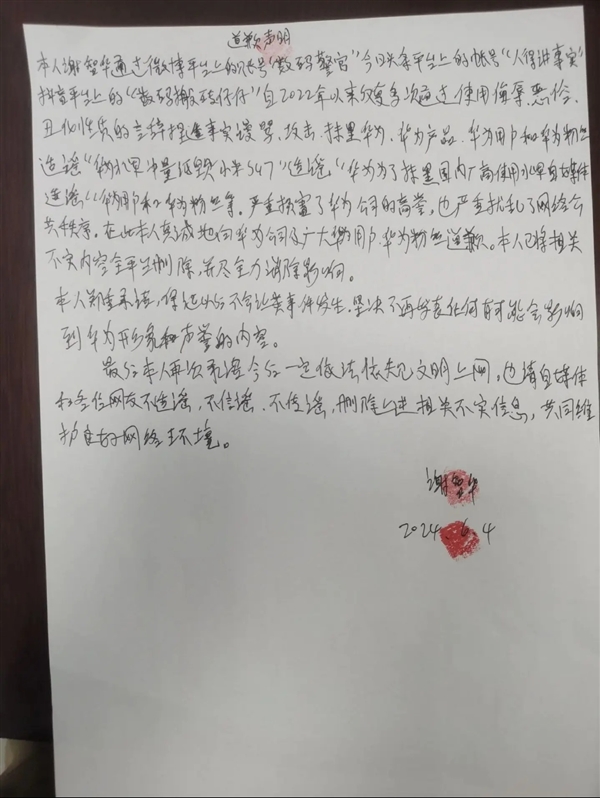 道歉声明
本人谢智华通过微博平台上的账号"数码警官"今日头条平台上的帐号"人得讲事实"
抖音平台上的"数码搬砖仔仔"自2022年以来反复多次通过使用侮辱、恶俗、
丑化性质的言辞捏造事实谩骂、攻击、抹黑华为、华为产品、华为用户和华为粉丝
造谣"华为水军 诋毁小米SU7"造谣"华为为了抹黑国内厂商使用水军自媒体
造谣"华为用户和华为粉丝等。严重损害了华为公司的商誉,也严重扰乱了网络公
共秩序。在此本人真诚地向华为公司及广大华为用户、华为粉丝道歉。本人已将相关
不实内容全平台删除,并尽全力消除影响。
本人郑重承诺,保证以后不会让类事件发生。坚决不再发表任何有可能会影响
到华为形象和声誉的内容。
最后本人再次承诺今后一定依法依规文明上网,也请自媒体
和各位网友不造谣,不信谣、不传谣,删除上述相关不实信息,共同维
护良好网络环境。
谢智华
2024.6.4